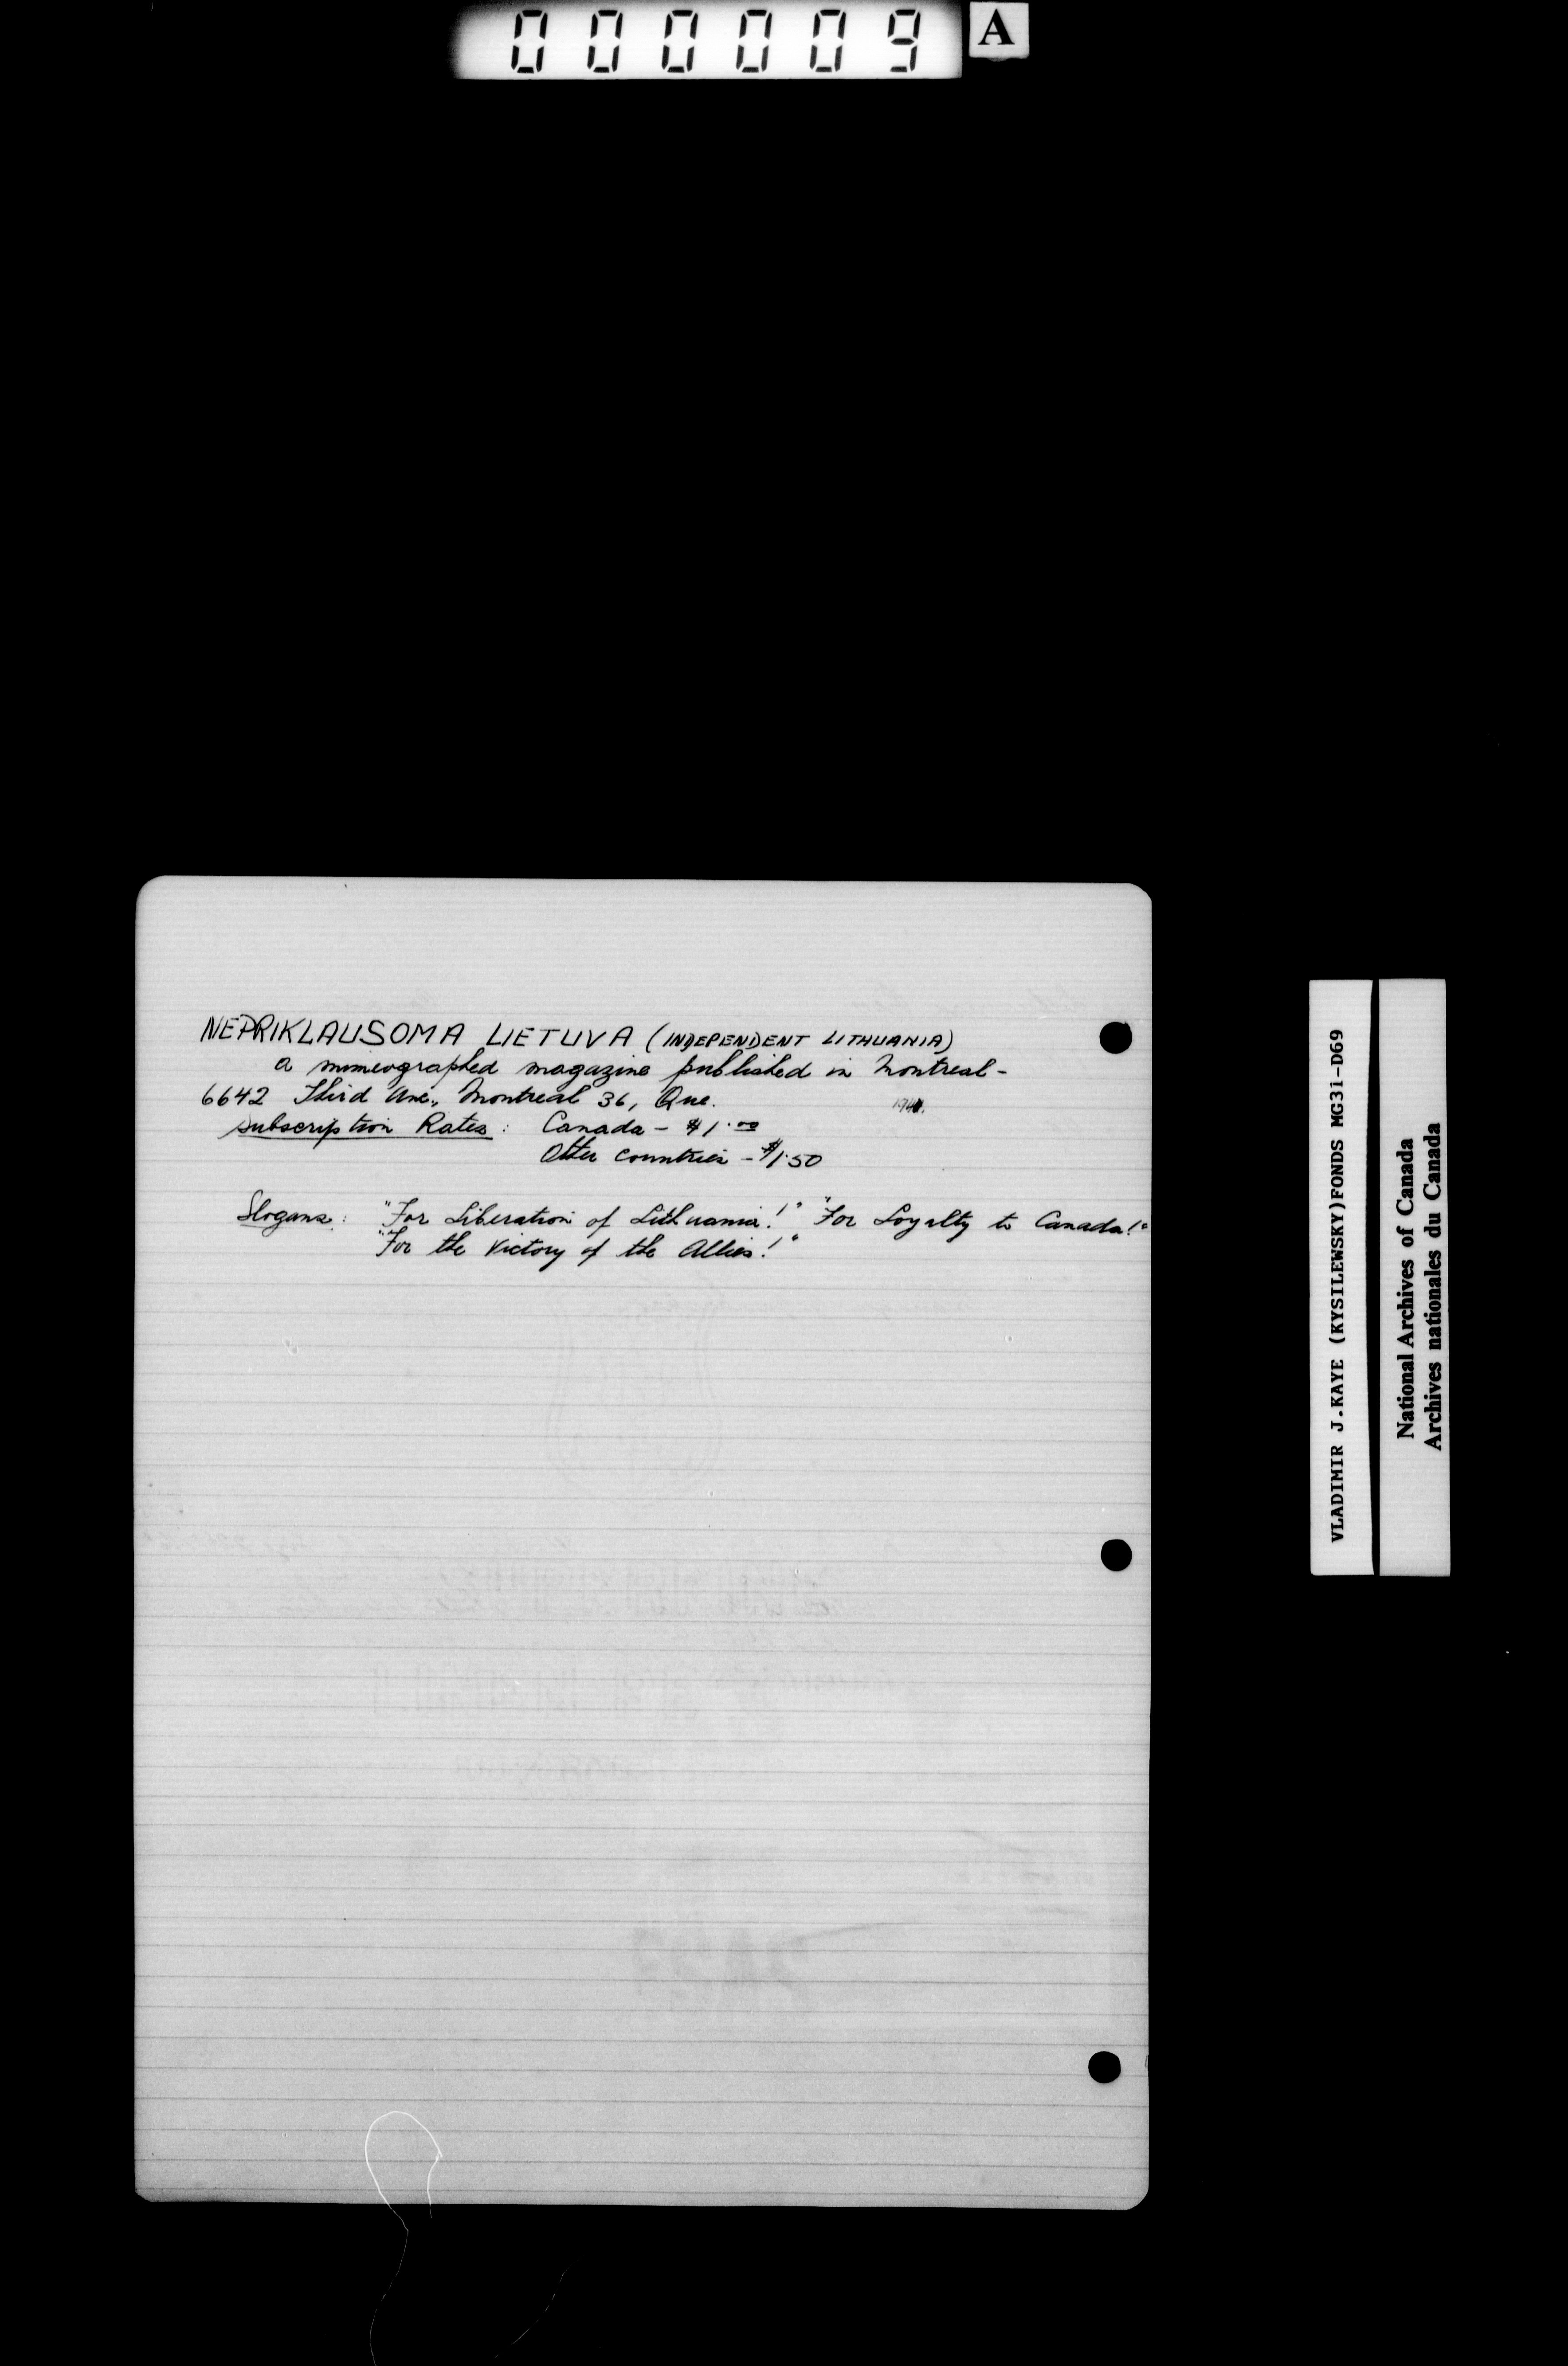 000009 A
NEPRIKLAUSOMA LIETUVA (INDEPENDENT LITHUANIA)
a mimeographed magazine published in Montreal -
6642 Third Ave., Montreal 36, Que.
Subscription Rates: Canada - $1.00
Other countries - $1.50
Slogans: "For Liberation of Lithuania!" "For Loyalty to Canada!"
"For the Victory of the Allies!"
VLADIMIR J.KAYE (KYSILEWSKY)FONDS MG31-D69
National Archives of Canada
Archives nationales du Canada